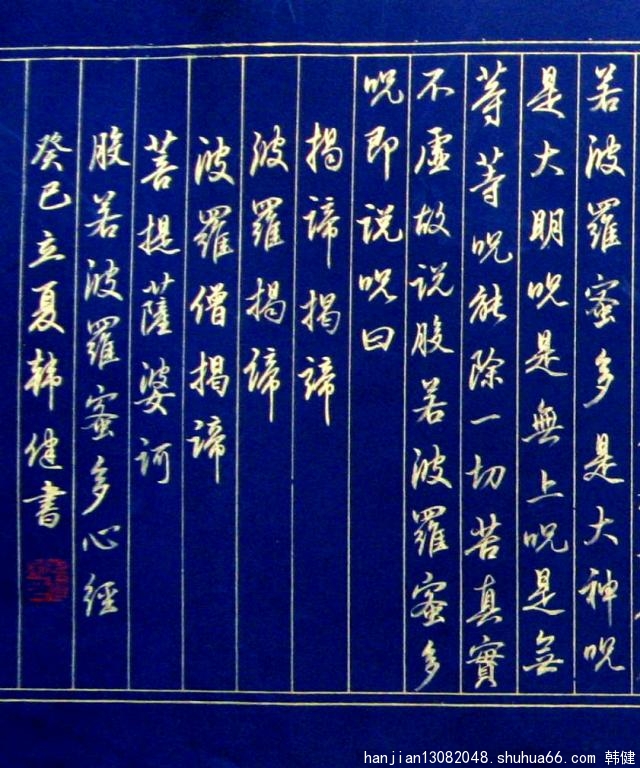 若波羅蜜多是大神呪
是大明呪是無上呪是無
等等呪能除一切苦真實
不虛故说般若波羅蜜多
呪即说呪曰
揭諦揭諦
波羅揭諦
波羅僧揭諦
菩提薩婆訶
般若波羅蜜多心經
癸巳立夏韩健書
hanjian13082048.shuhua66.com 韩健